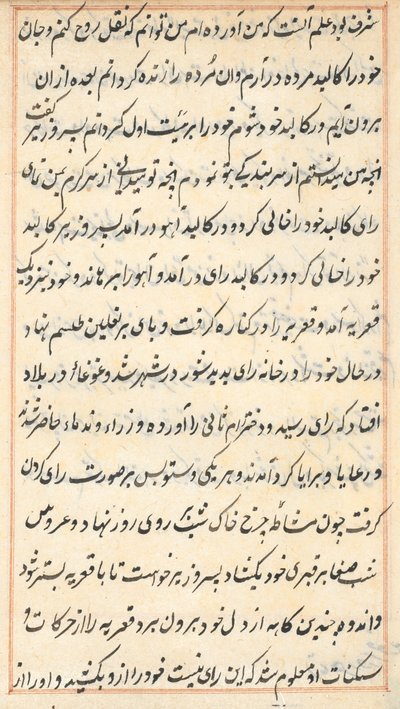 شرف بود علم آنست که من آورده ام من توانم که نقل روح کنم و جان
خود را کالبد مرده در آرم و ان مرده را زنده کردانم بعده از ان
برون آیم در کالبد خود شوم خود را بر هیئت اول کردانم پسر وزیر گفت
انچه من میدانستم از سر بندیکی بتو نمودم انچه تو میدانی از سر کرم بمن نمای
رای کالبد خود را خالی کرد و در کالبد آهو در آمد پسر وزیر کالبد
خود را خالی کرد و در کالبد رای در آمد و آهو را برهاند و خود نزدیک
قمریه آمد و قمریه را در کناره گرفت و پای بر نعلین طلسم نهاد
در حال خود را در خانه رای بدید شور در شهر شد و غوغا در بلاد
افتاد که رای رسید و دختر ام ثانی را آورده وزراء و ندماء حاضر شدند
و رعایا و برایا کرد آمدند و هر یکی دستوبس بر صورت رای کردن
گرفت چون مشاطه چرخ خاک شب بر روی روز نهاد و عروس
شب صفا بر قبری خود بکشاد پسر وزیر خوست تا با قمریه بستر شود
و اندوه چندین کاهه از دل خود برون برد قمریه را از حرکات و
سکنات او معلوم شد که این رای نیست خود را ازو بکشید و او را از